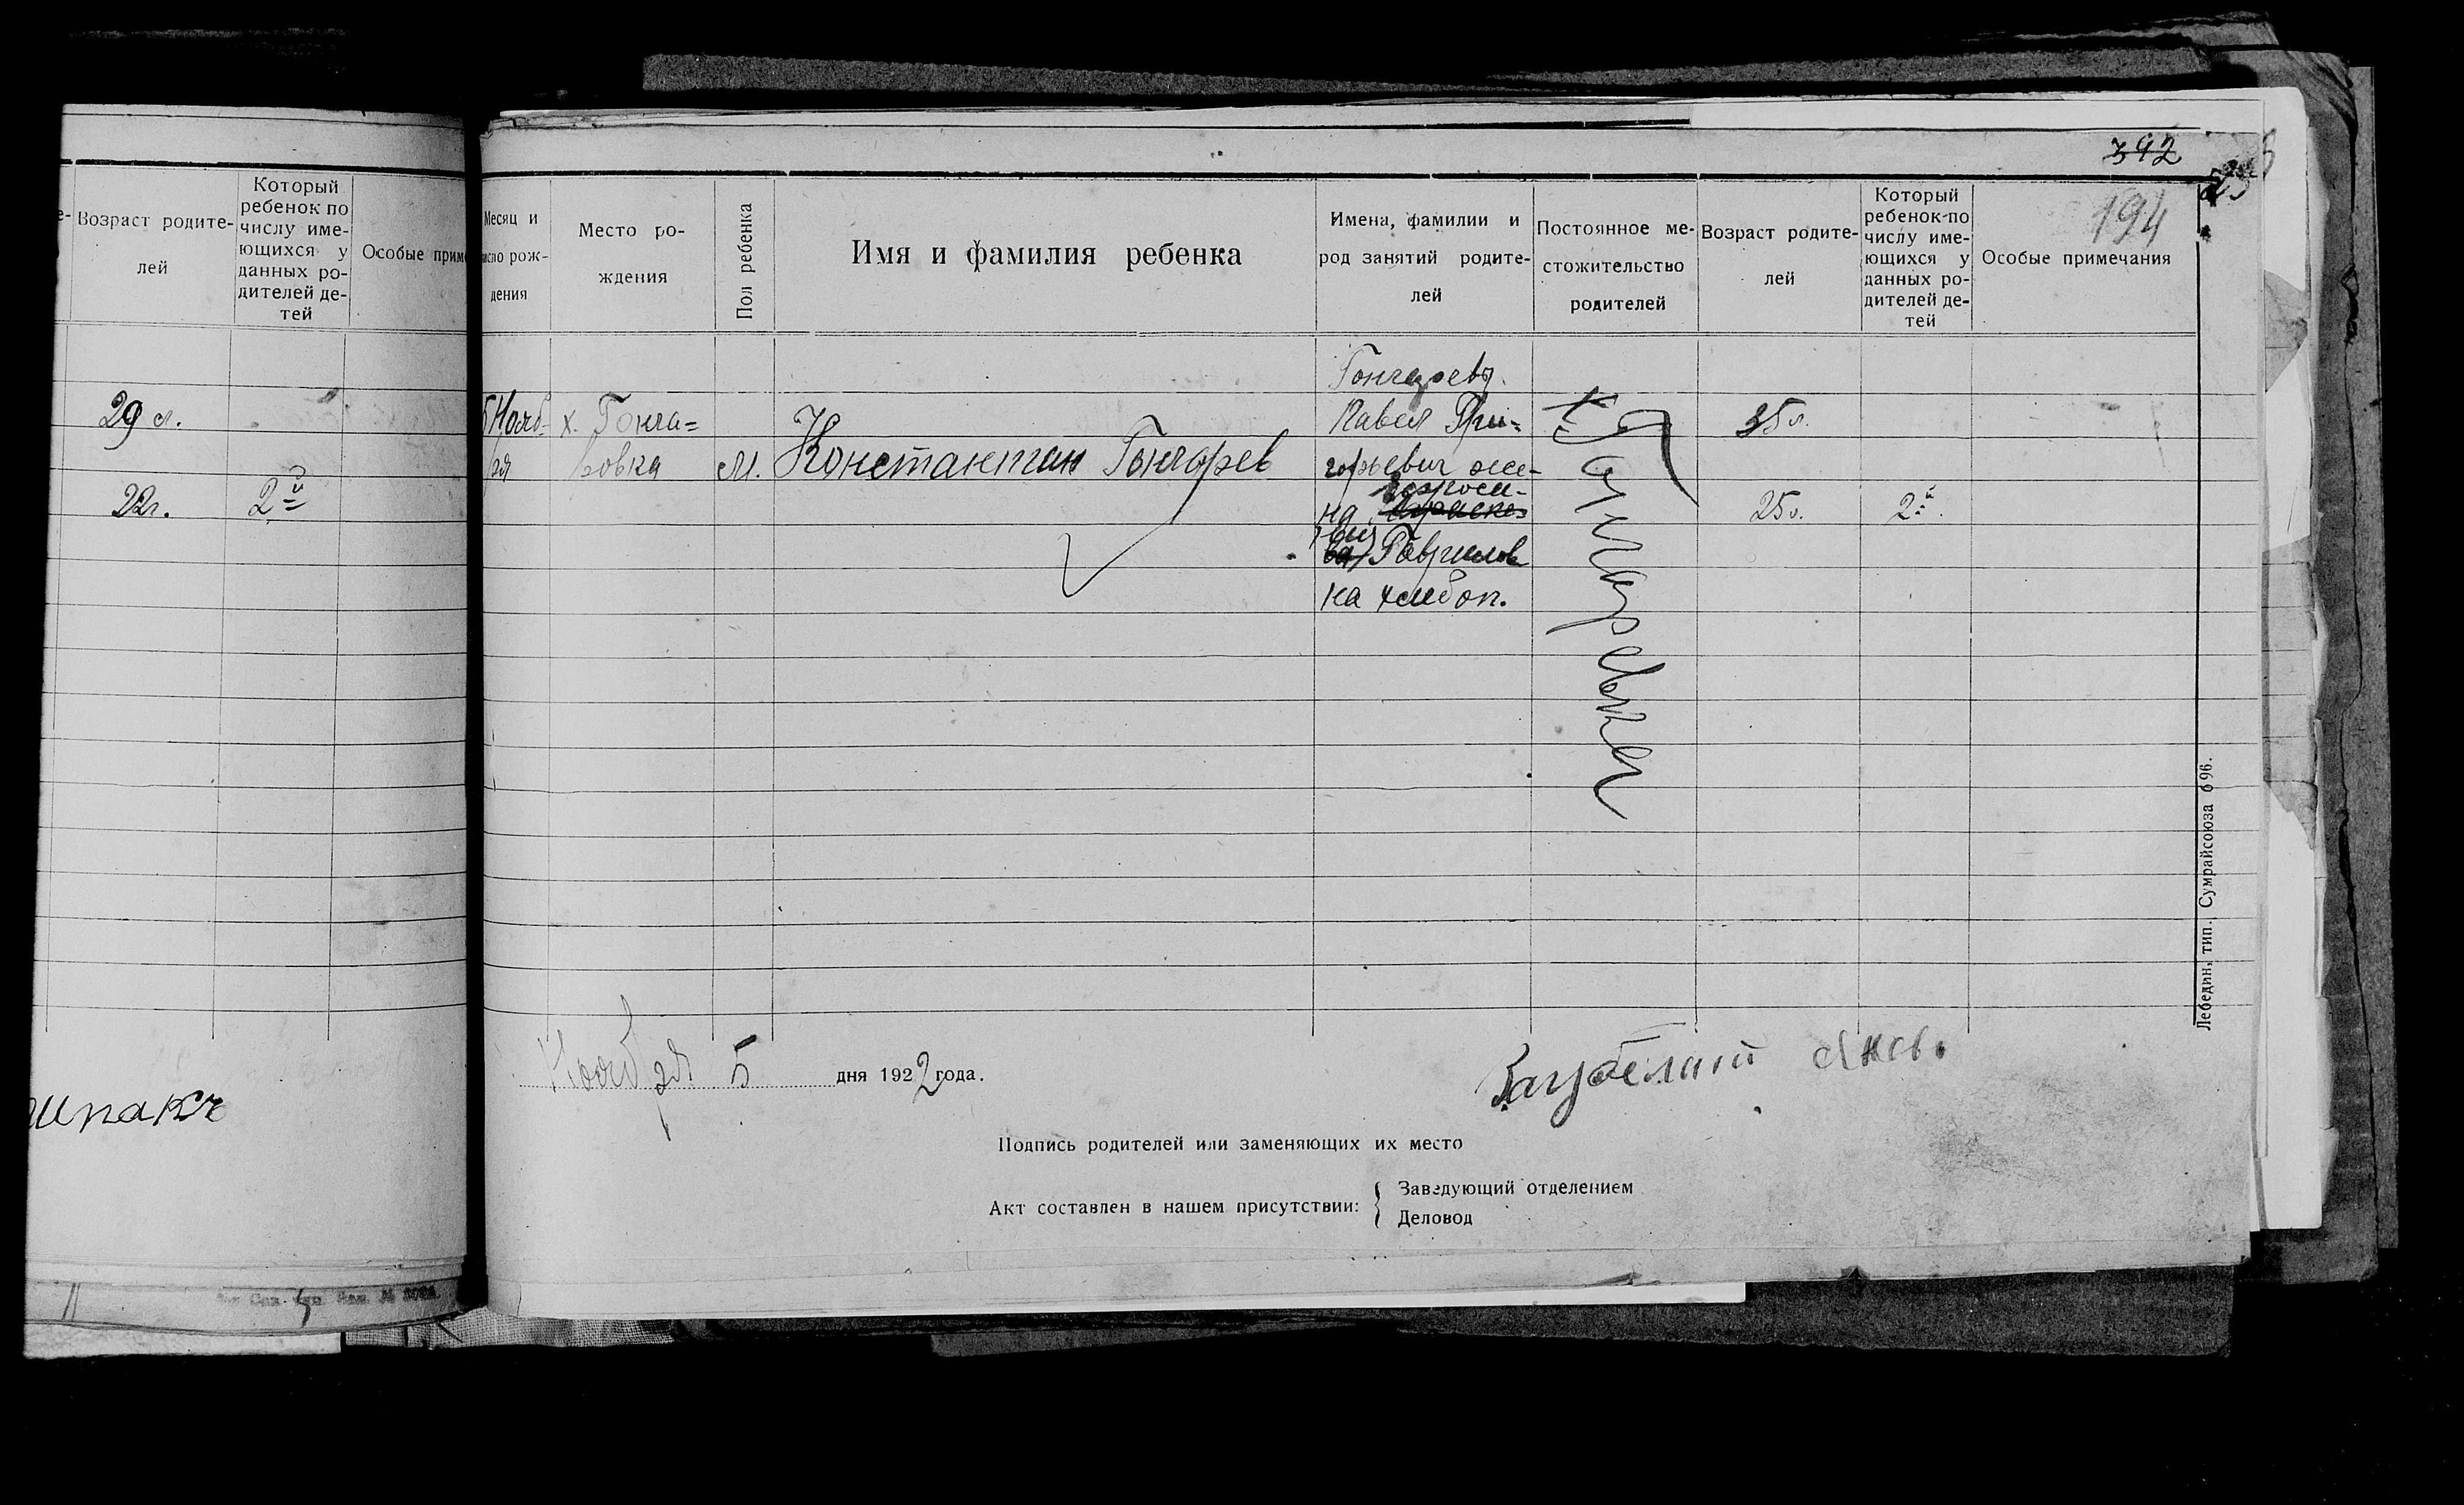 Возраст родите-
лей
Который
ребенок по
числу име-
ющихся у
данных ро-
дителей де-
тей
Особые прим
29 л.
22 г.
2й
392
194
Месяц и
число рож-
дения
Место ро-
ждения
Пол ребенка
Имя и фамилия ребенка
Имена, фамилии и
род занятий родите-
лей
Постоянное ме-
стожительство
родителей
Возраст родите-
лей
Который
ребенок по
числу име-
ющихся у
данных ро-
дителей де-
тей
Особые примечания
Нояб-
ря
х. Гонча=
ровка
м.
Константин Гончарев
Гончаревы.
Павел Гри=
горьевич же-
на
Гаврилов
на хлибоп.
х. Гончаревка
35 л.
25 л.
2й.
Ноября 5 дня 1922 года.
Подпись родителей или заменяющих их место
Акт составлен в нашем присутствии:
Заведующий отделением
Деловод
Лебедин, тип. Сумрайсоюза 696.